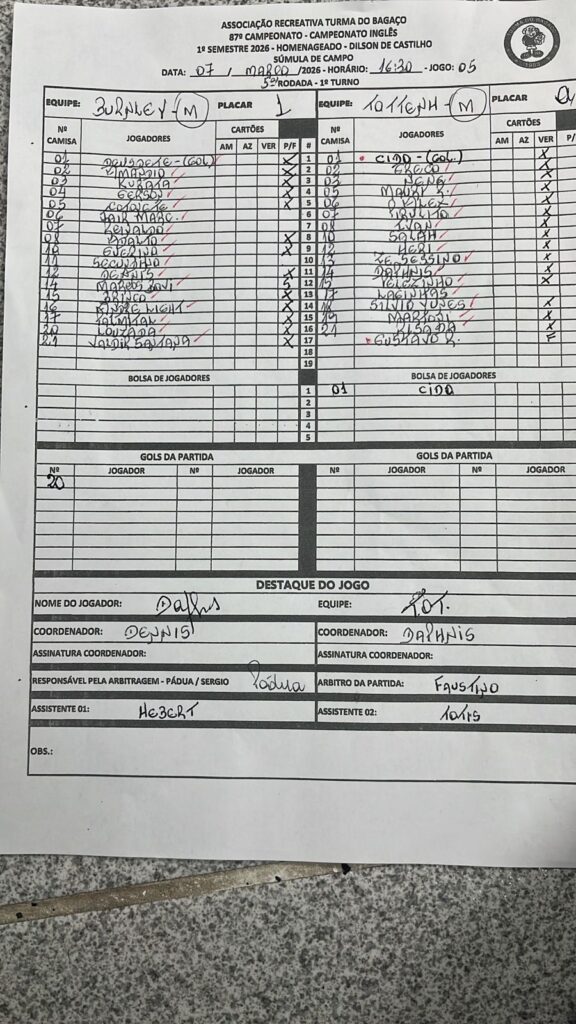 ASSOCIAÇÃO RECREATIVA TURMA DO BAGAÇO
87º CAMPEONATO - CAMPEONATO INGLÊS
1º SEMESTRE 2026 - HOMENAGEADO - DILSON DE CASTILHO
SÚMULA DE CAMPO
DATA: 07 / MARÇO /2026 - HORÁRIO: 16:30 - JOGO: 05
5ª RODADA - 1º TURNO
EQUIPE: BURNLEY - M PLACAR 1 EQUIPE: TOTTENH - M PLACAR
Nº CAMISA JOGADORES CARTÕES AM AZ VER P/F # Nº CAMISA JOGADORES CARTÕES AM AZ VER P/F
01 (GOL) X 1 01 CIDO - (GOL.) X
02 X 2 02 GRECO X
03 KURATA X 3 03 NENE X
04 GERSON X 4 05 MAURY R. X
05 X 5 06 X
06 JAIR MARC. 6 07 PIRULITO X
07 REINALDO 7 08 IVAN X
08 X 8 10 SALAH X
10 GUERINO X 9 12 X
11 SEGUNDINHO 10 13 X
12 DENNIS X 11 14 DAPHNIS X
14 MARCOS S 12 15 X
15 X 13 17 LAGINHAS
16 LIGHT X 14 18 SILVIO NUNES X
17 X 15 19 X
20 LOUZADA X 16 21 RISADA X
21 VALDIR SANTANA X 17 GUSTAVO R. F
18
19
BOLSA DE JOGADORES BOLSA DE JOGADORES
1 01 CIDO
2
3
4
5
GOLS DA PARTIDA GOLS DA PARTIDA
Nº JOGADOR Nº JOGADOR Nº JOGADOR Nº JOGADOR
20
DESTAQUE DO JOGO
NOME DO JOGADOR: EQUIPE: TOT.
COORDENADOR: DENNIS COORDENADOR: DAPHNIS
ASSINATURA COORDENADOR: ASSINATURA COORDENADOR:
RESPONSÁVEL PELA ARBITRAGEM - PÁDUA / SERGIO Pádua ARBITRO DA PARTIDA: FAUSTINO
ASSISTENTE 01: HEBERT ASSISTENTE 02:
OBS.: